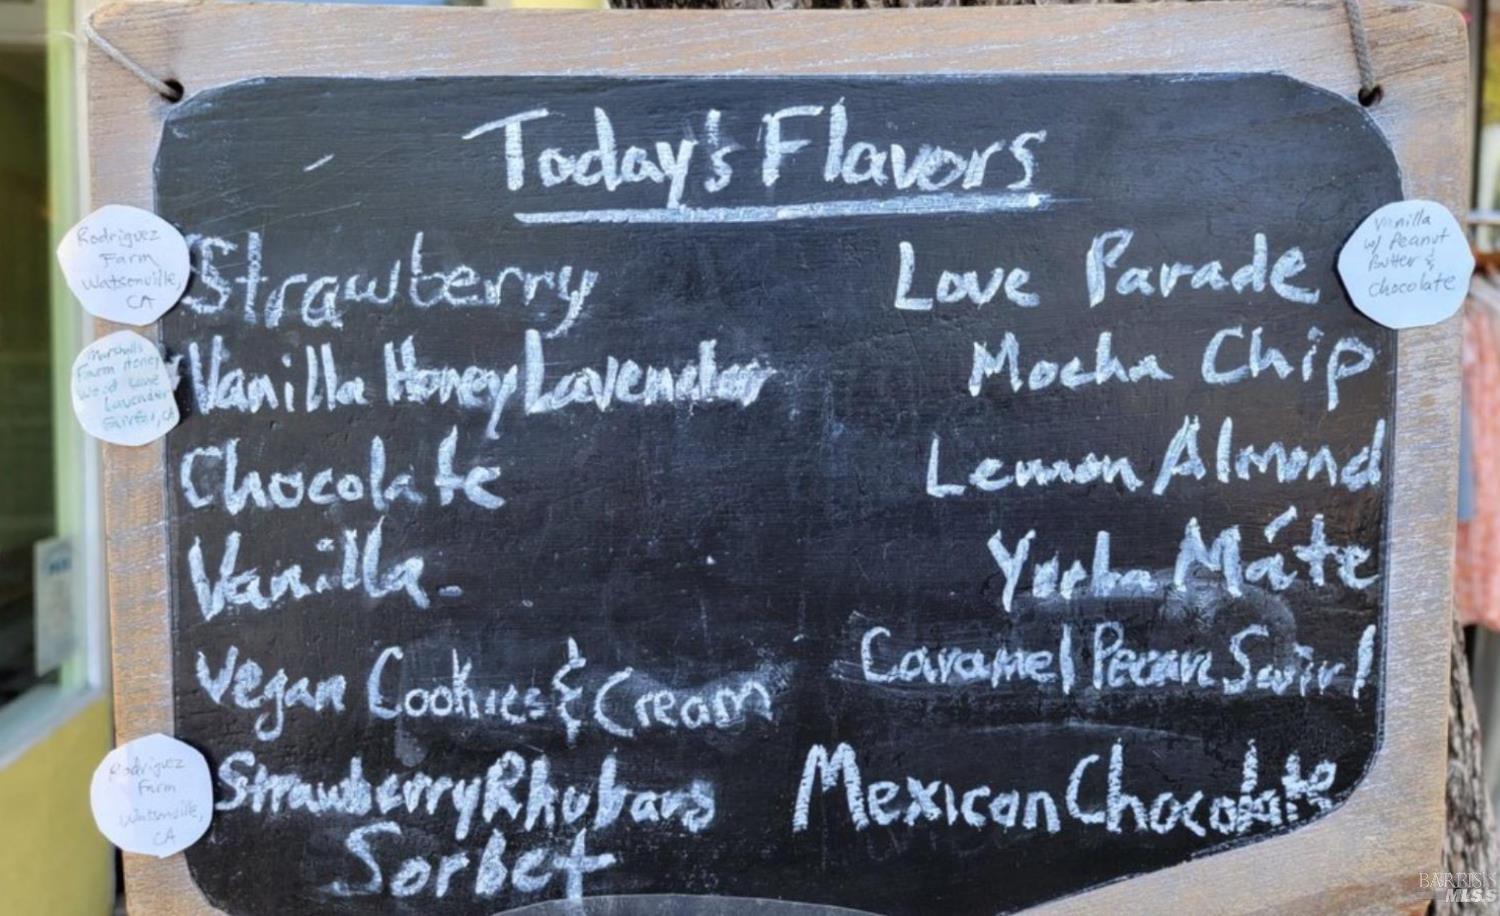 Today's Flavors
Strawberry
Vanilla Honey Lavender
Chocolate
Vanilla
Vegan Cookies & Cream
Strawberry Rhubarb
Sorbet
Love Parade
Mocha Chip
Lemon Almond
Yerba Máte
Caramel Pecan Swirl
Mexican Chocolate
Rodriguez
Farm
Watsonville,
CA
Marshall's
Farm Honey
Lavender
Rodriguez
Farm
Watsonville,
CA
Vanilla
w/ Peanut
Butter &
Chocolate
BAREIS
MLS